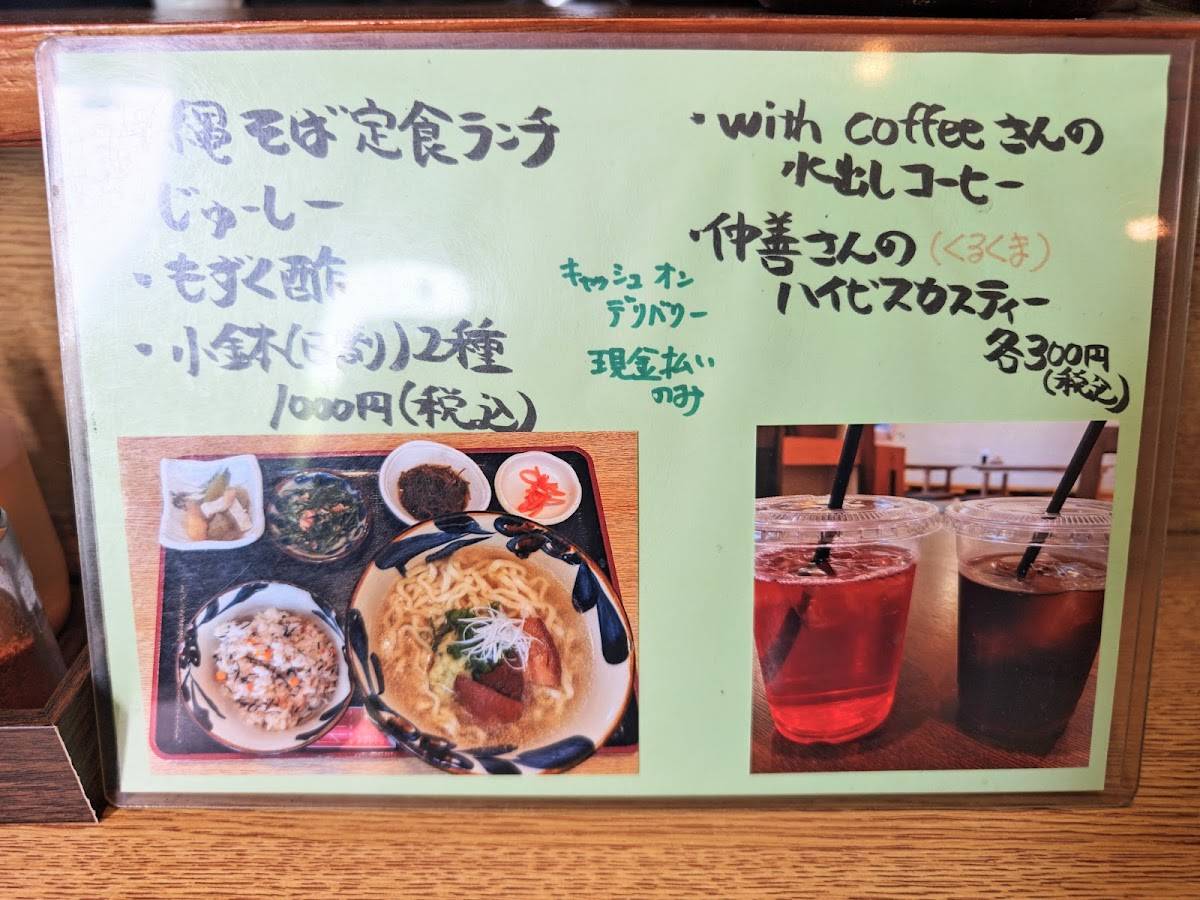 縄そば定食ランチ
じゅーしー
・もずく酢
・小鉢(日割)2種
1000円(税込)
キャッシュ オン
デリバリー
現金払い
のみ
・with coffeeさんの
水出しコーヒー
・仲善さんの(くるくま)
ハイビスカスティー
各300円
(税込)